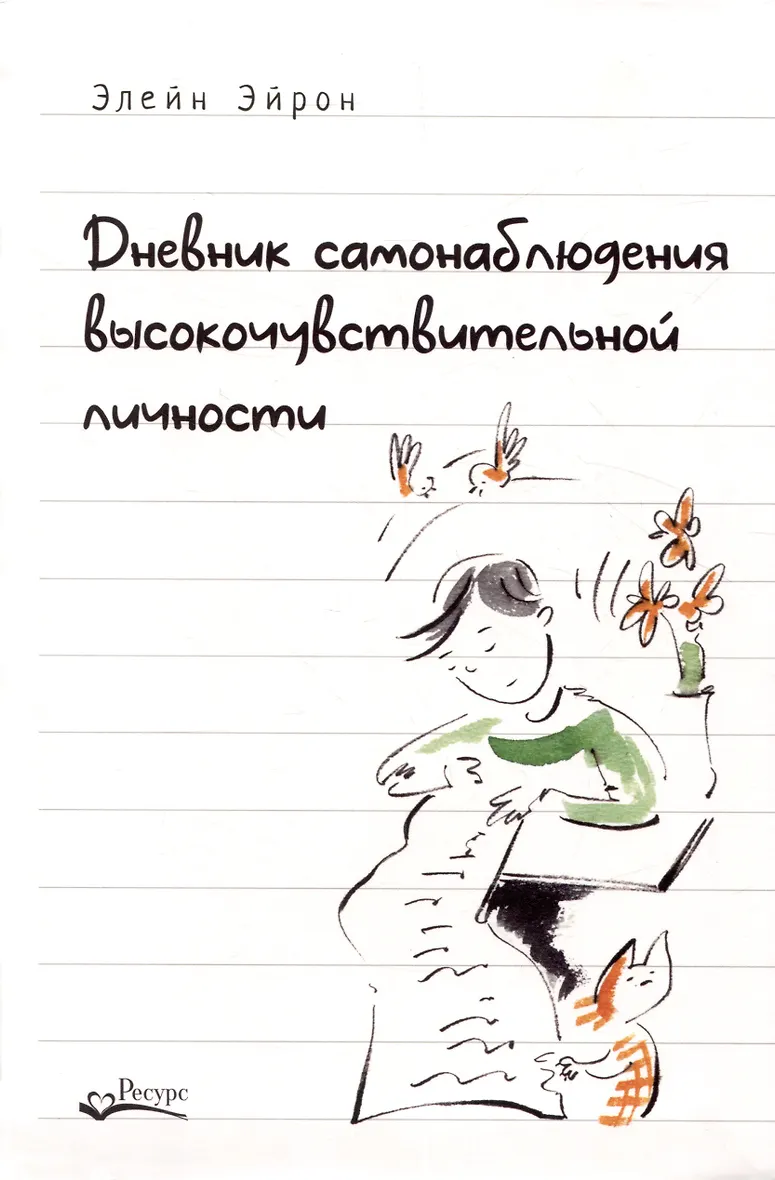 Элейн Эйрон
Дневник самонаблюдения
высокочувствительной
личности
Ресурс